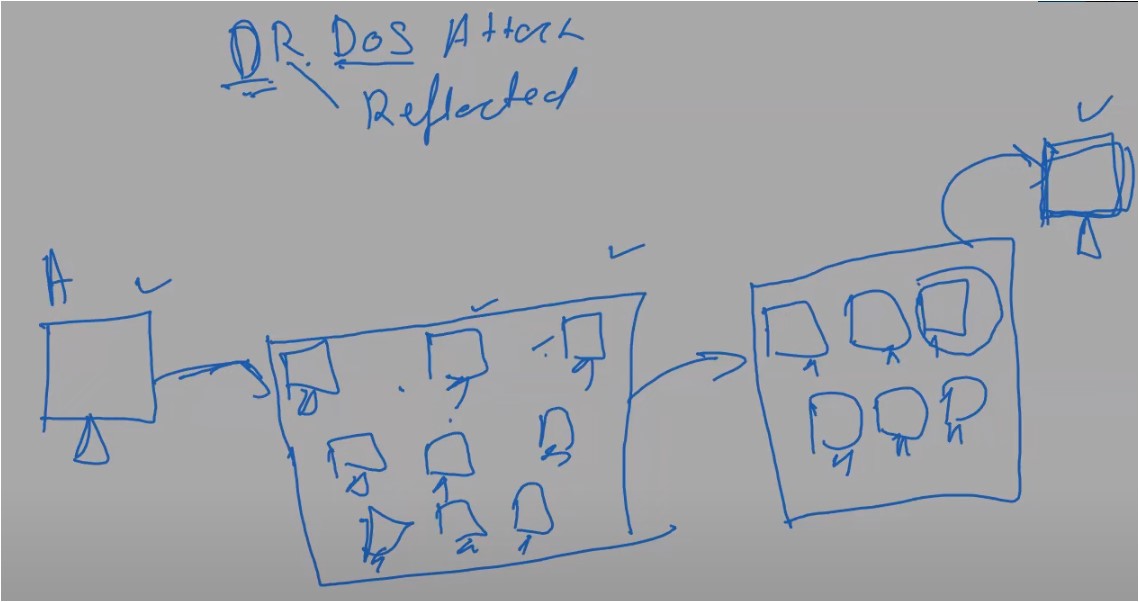 DR. DoS Attack
Reflected
A